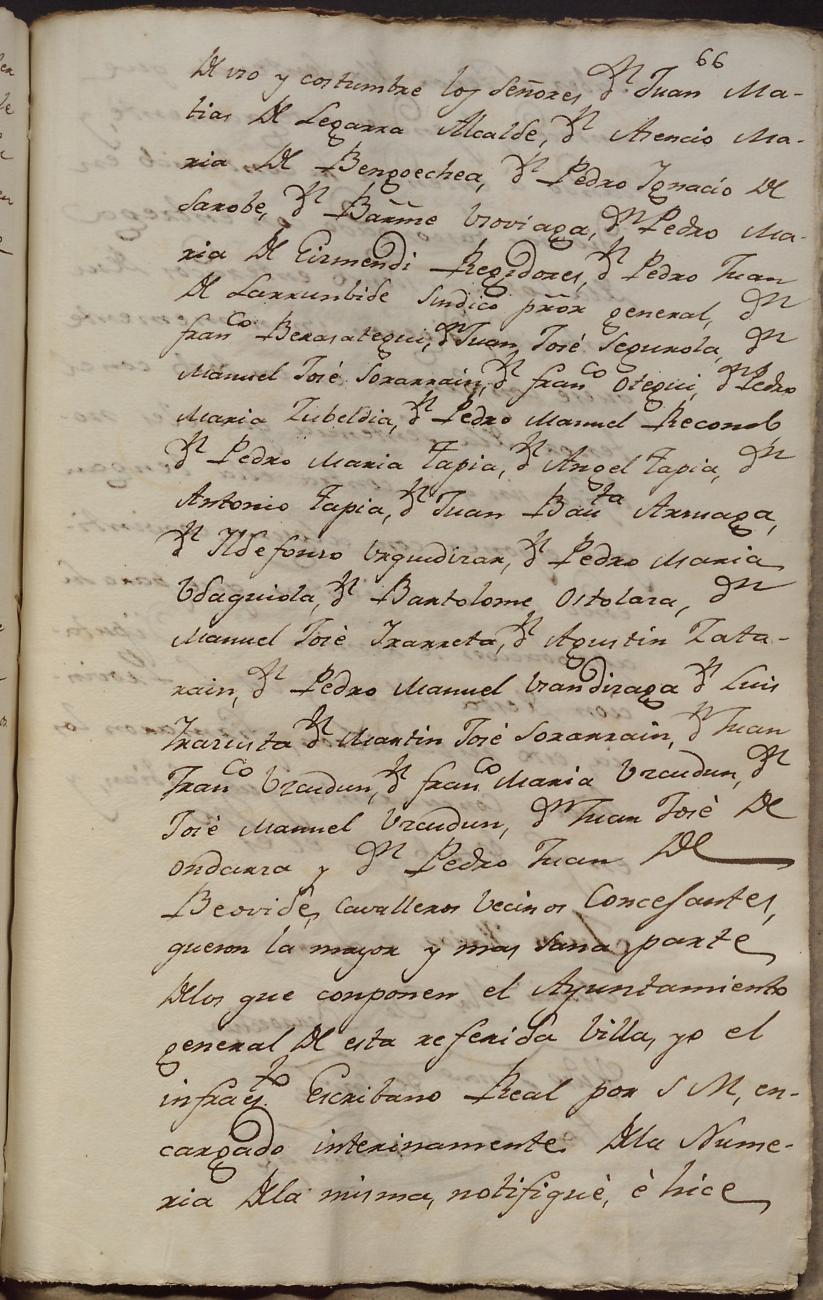 66
De uso y costumbre los Señores Dn. Juan Ma-
tias De Legarra Alcalde, Dn. Asencio Ma-
ria De Bengoechea, Dn. Pedro Ygnacio De
Sarobe, Dn. Barñme Uroviaga, Dn Pedro Ma-
ria De Eizmendi Regidores, Dn. Pedro Juan
De Larrunbide Sindico prõr general, Dn
franco Berasategui, Dn Juan José Segurola, Dn
Manuel José Sorarrain, Dn. franco Otegui, Dn Pedro
Maria Zubeldia, Dn. Pedro Manuel
Dn. Pedro Maria Tapia, Dn. Angel Tapia, Dn
Antonio Tapia, Dn. Juan Bauta Arruaga,
Dn. Yldefonso Urquidizar, Dn. Pedro Maria
Udaguiola, Dn. Bartolome Ostolara, Dn
Manuel Josè Yrarreta, Dn. Agustin Zata-
rain, Dn. Pedro Manuel Urandizaga Dn. Luis
Yrazusta Dn. Martin José Sorarrain, Dn Juan
Franco Urcudun, Dn. franco Maria Urcudun, Dn
José Manuel Urcudun, Dn Juan Josè De
Ondarra y Dn. Pedro Juan De
Beovide, Cavalleros Vecinos Concejantes,
queson la mayor y mas Sana parte
Delos que conponen el Ayuntamiento
general De esta referida Villa, yo el
infraesto. Escribano Real por S M, en-
cargado interinamente Dela Nume-
ria Dela misma, notifiquè, è hice